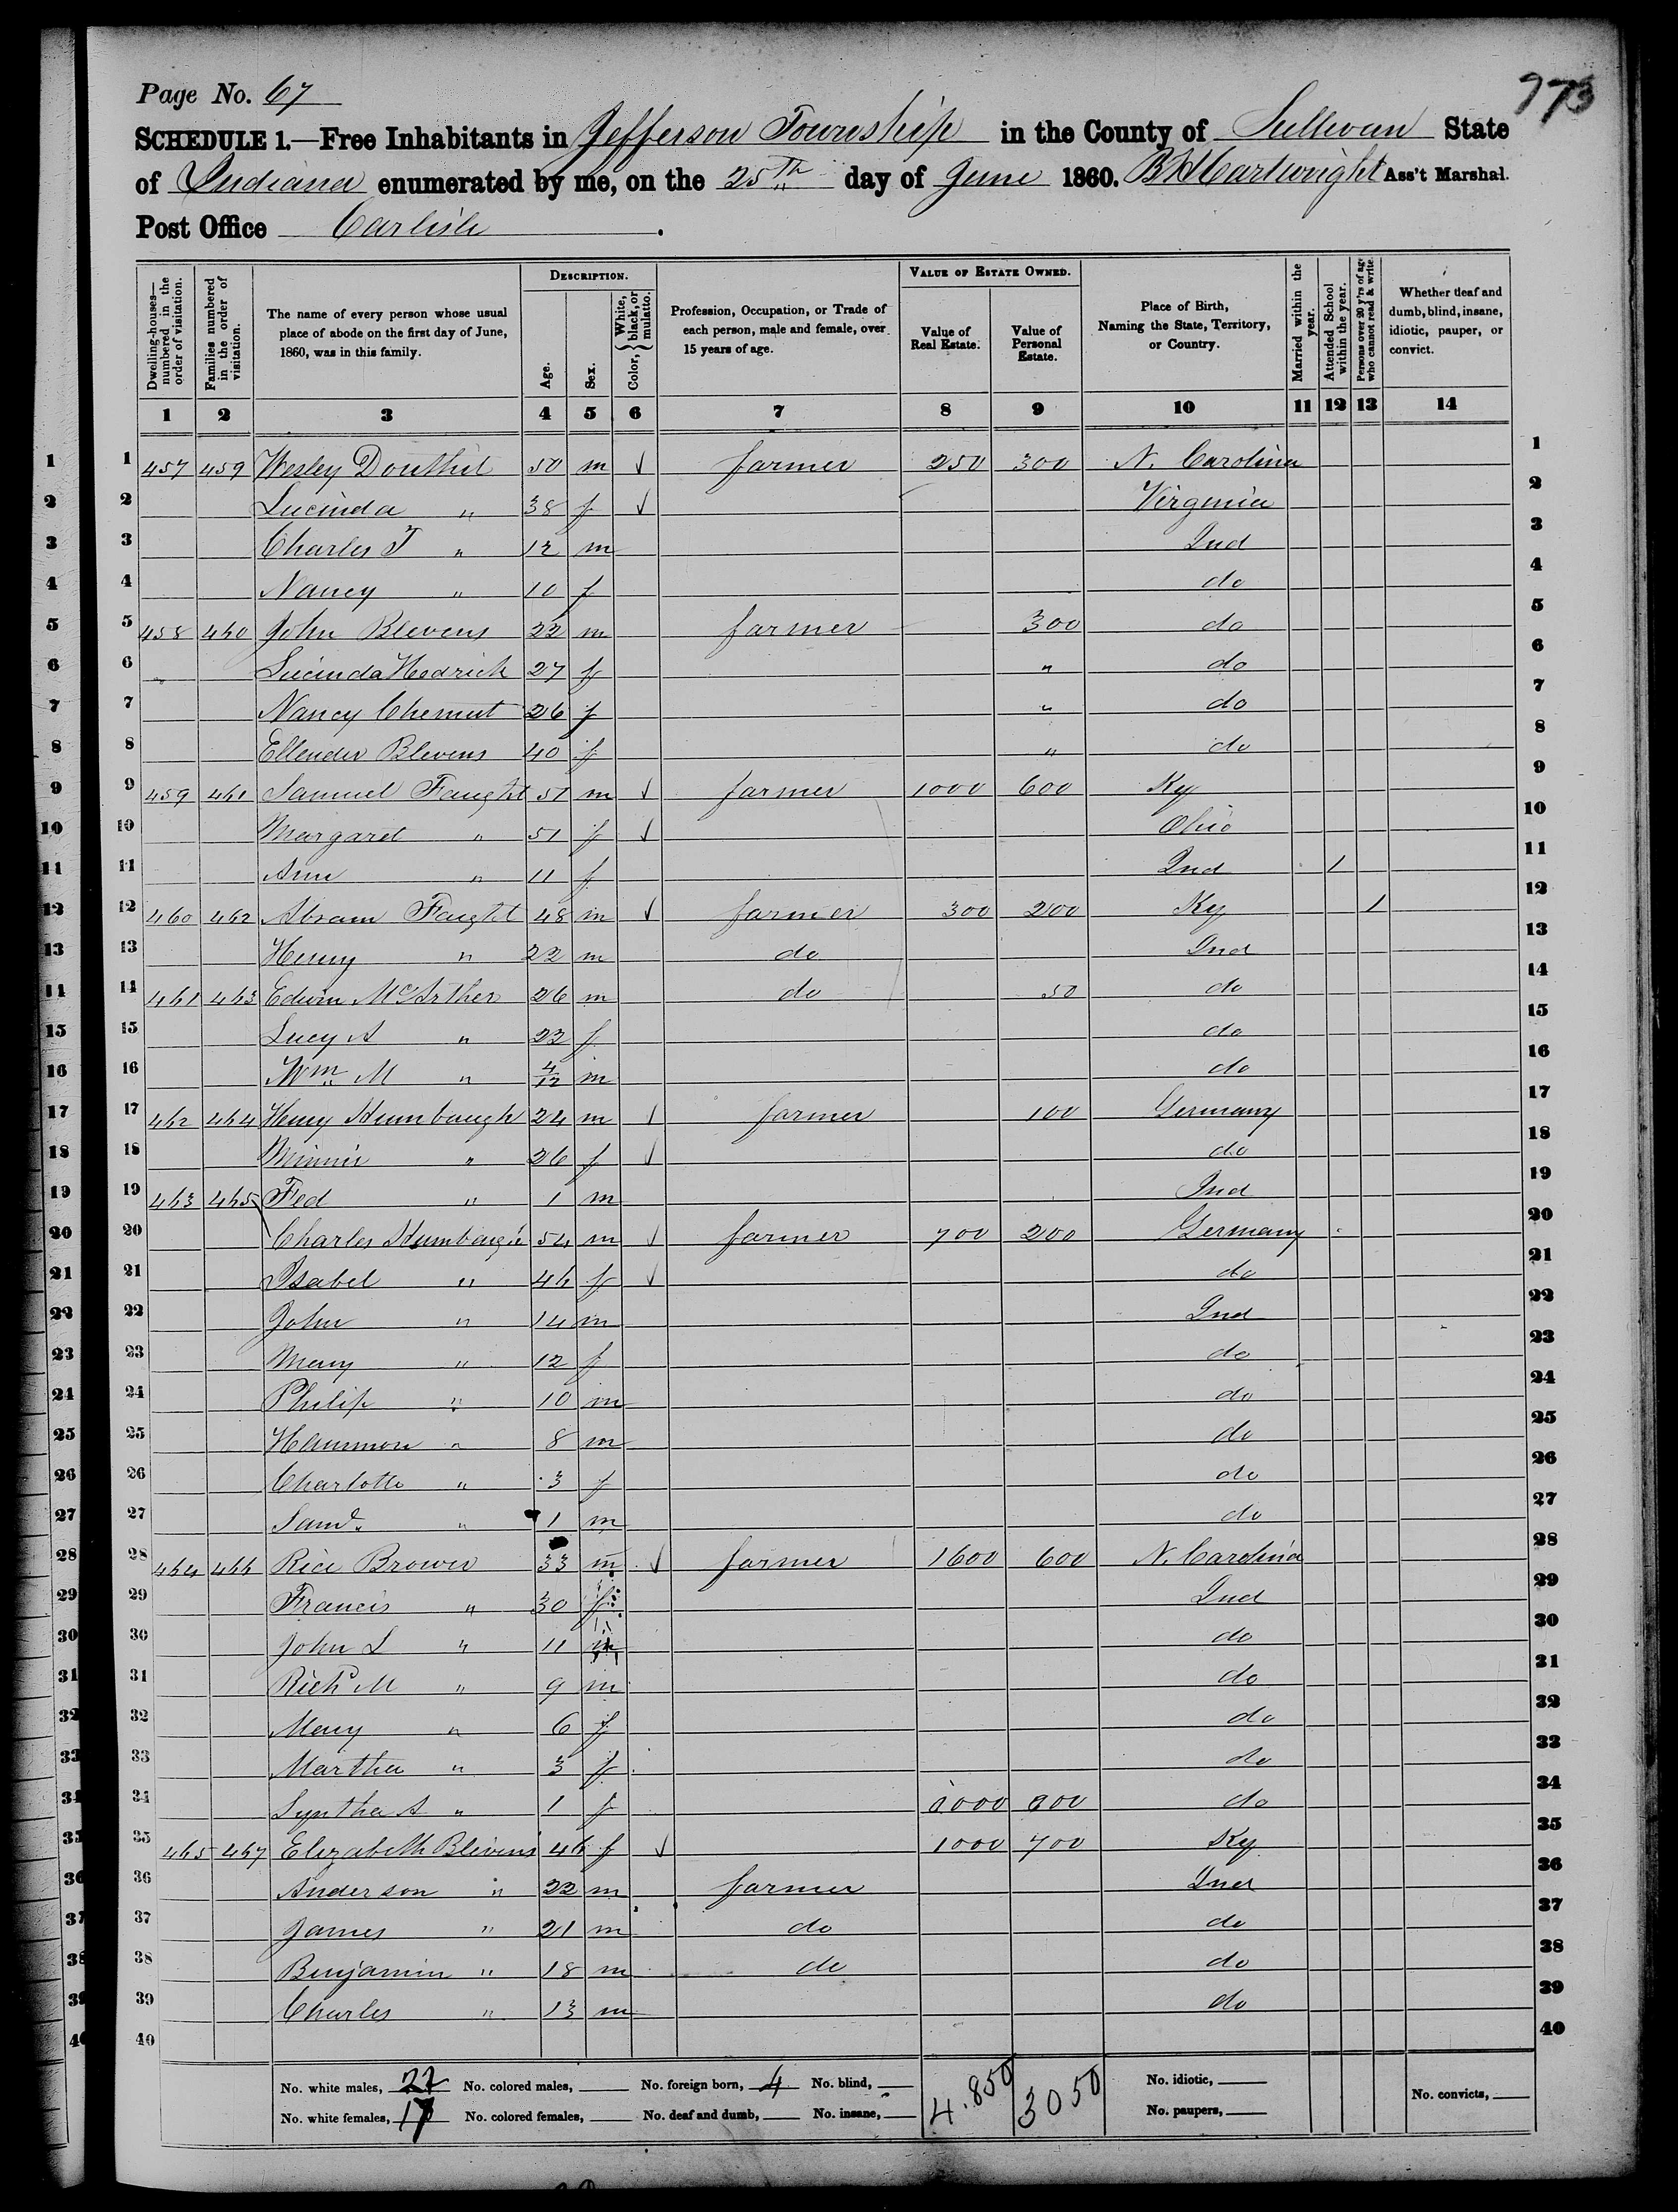 Page No. 67
973
SCHEDULE 1.—Free Inhabitants in Jefferson Township in the County of Sullivan State
of Indiana enumerated by me, on the 25th day of June 1860. B H Cartwright Ass't Marshal.
Post Office Carlisle.
Dwelling-houses—numbered in the order of visitation.
Families numbered in the order of visitation.
The name of every person whose usual place of abode on the first day of June, 1860, was in this family.
DESCRIPTION.
Age.
Sex.
Color, { White, black, or mulatto.
Profession, Occupation, or Trade of each person, male and female, over 15 years of age.
VALUE OF ESTATE OWNED.
Value of Real Estate.
Value of Personal Estate.
Place of Birth, Naming the State, Territory, or Country.
Married within the year.
Attended School within the year.
Persons over 20 y'rs of age who cannot read & write.
Whether deaf and dumb, blind, insane, idiotic, pauper, or convict.
1 2 3 4 5 6 7 8 9 10 11 12 13 14
1 457 459 Wesley Douthit 50 m √ farmer 250 300 N. Carolina 1
2 Lucinda " 38 f √ Virginia 2
3 Charles T " 12 m Ind 3
4 Nancy " 10 f do 4
5 458 460 John Blevens 22 m farmer 300 do 5
6 Lucinda Hedrick 27 f " do 6
7 Nancy Chemut 26 f " do 7
8 Ellender Blevens 40 f " do 8
9 459 461 Samuel Faught 51 m √ farmer 1000 600 Ky 9
10 Margaret " 51 f √ Ohio 10
11 Ann " 11 f Ind 1 11
12 460 462 Abram Faught 48 m √ farmer 300 200 Ky 1 12
13 Henry " 22 m do Ind 13
14 461 463 Edwin McArther 26 m do 50 do 14
15 Lucy A " 22 f do 15
16 Wm M " 4/12 m do 16
17 462 464 Henry Humbaugh 24 m √ farmer 100 Germany 17
18 Minnie " 26 f √ do 18
19 463 465 Fed " 1 m Ind 19
20 Charles Humbaugh 54 m √ farmer 700 200 Germany 20
21 Isabel " 46 f √ do 21
22 John " 14 m Ind 22
23 Mary " 12 f do 23
24 Philip " 10 m do 24
25 Hammon " 8 m do 25
26 Charlotte " 3 f do 26
27 Saml. " 1 m do 27
28 464 466 Rice Brower 33 m √ farmer 1600 600 N. Carolina 28
29 Francis " 30 f Ind 29
30 John L " 11 m do 30
31 Richd M " 9 m do 31
32 Mary " 6 f do 32
33 Martha " 3 f do 33
34 Syntha A " 1 f do 34
35 465 467 Elizabeth Blevins 46 f √ 1000 700 Ky 35
36 Anderson " 22 m farmer Ind 36
37 James " 21 m do do 37
38 Benjamin " 18 m do do 38
39 Charles " 13 m do 39
40 40
No. white males, 22 No. colored males, No. foreign born, 4 No. blind, 4.850 3050 No. idiotic,
No. white females, 17 No. colored females, No. deaf and dumb, No. insane, No. paupers, No. convicts,